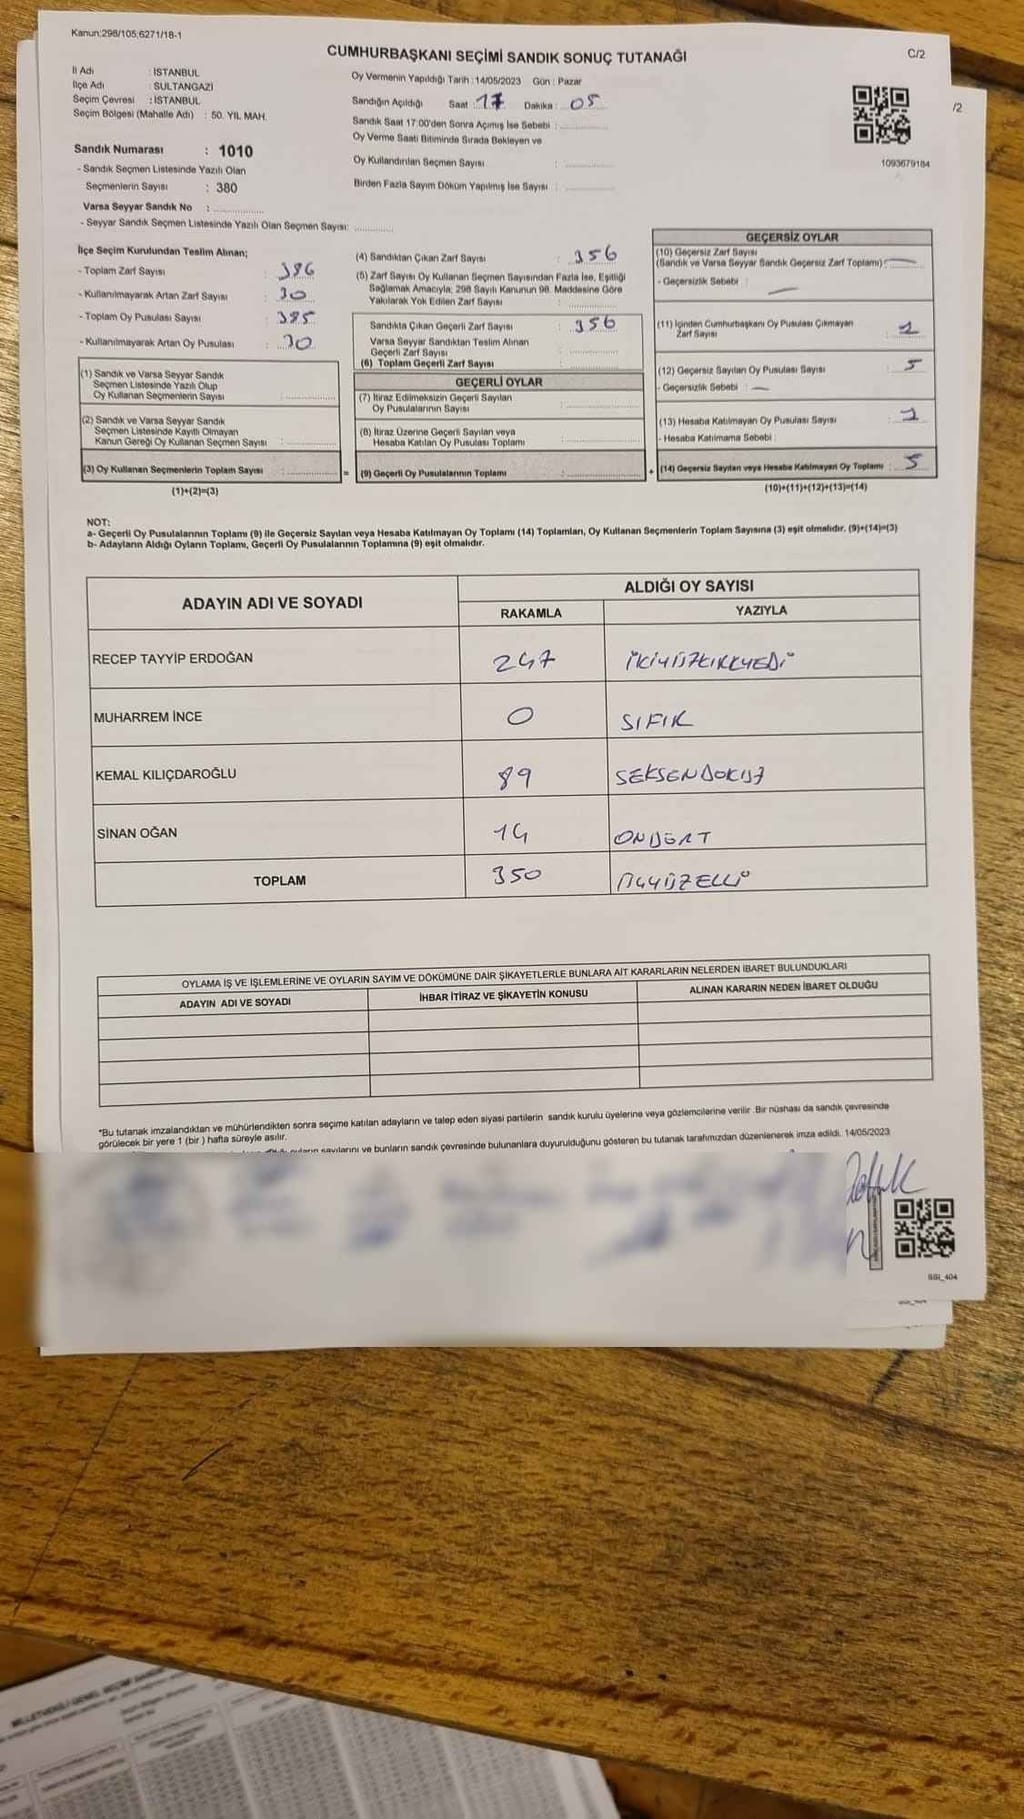 Kanun:298/105;6271/18-1
CUMHURBAŞKANI SEÇİMİ SANDIK SONUÇ TUTANAĞI
C/2
/2
İl Adı : İSTANBUL
İlçe Adı : SULTANGAZİ
Seçim Çevresi : İSTANBUL
Seçim Bölgesi (Mahalle Adı) : 50. YIL MAH.
Oy Vermenin Yapıldığı Tarih : 14/05/2023 Gün : Pazar
Sandığın Açıldığı Saat : 17 Dakika : 05
Sandık Saat 17:00'den Sonra Açımış İse Sebebi :
Oy Verme Saati Bitiminde Sırada Bekleyen ve
Oy Kullandırılan Seçmen Sayısı :
Birden Fazla Sayım Döküm Yapılmış İse Sayısı :
1093679184
Sandık Numarası : 1010
- Sandık Seçmen Listesinde Yazılı Olan
Seçmenlerin Sayısı : 380
Varsa Seyyar Sandık No :
- Seyyar Sandık Seçmen Listesinde Yazılı Olan Seçmen Sayısı:
İlçe Seçim Kurulundan Teslim Alınan;
- Toplam Zarf Sayısı : 386
- Kullanılmayarak Artan Zarf Sayısı : 30
- Toplam Oy Pusulası Sayısı : 385
- Kullanılmayarak Artan Oy Pusulası : 30
(1) Sandık ve Varsa Seyyar Sandık
Seçmen Listesinde Yazılı Olup
Oy Kullanan Seçmenlerin Sayısı :
(2) Sandık ve Varsa Seyyar Sandık
Seçmen Listesinde Kayıtlı Olmayan
Kanun Gereği Oy Kullanan Seçmen Sayısı :
(3) Oy Kullanan Seçmenlerin Toplam Sayısı :
(1)+(2)=(3)
(4) Sandıktan Çıkan Zarf Sayısı : 356
(5) Zarf Sayısı Oy Kullanan Seçmen Sayısından Fazla İse, Eşitliği
Sağlamak Amacıyla; 298 Sayılı Kanunun 98. Maddesine Göre
Yakılarak Yok Edilen Zarf Sayısı :
Sandıkta Çıkan Geçerli Zarf Sayısı : 356
Varsa Seyyar Sandıktan Teslim Alınan
Geçerli Zarf Sayısı :
(6) Toplam Geçerli Zarf Sayısı :
GEÇERLİ OYLAR
(7) İtiraz Edilmeksizin Geçerli Sayılan
Oy Pusulalarının Sayısı :
(8) İtiraz Üzerine Geçerli Sayılan veya
Hesaba Katılan Oy Pusulası Toplamı :
= (9) Geçerli Oy Pusulalarının Toplamı :
GEÇERSİZ OYLAR
(10) Geçersiz Zarf Sayısı
(Sandık ve Varsa Seyyar Sandık Geçersiz Zarf Toplamı) : —
- Geçersizlik Sebebi : —
(11) İçinden Cumhurbaşkanı Oy Pusulası Çıkmayan
Zarf Sayısı : 1
(12) Geçersiz Sayılan Oy Pusulası Sayısı : 5
- Geçersizlik Sebebi : —
(13) Hesaba Katılmayan Oy Pusulası Sayısı : 1
- Hesaba Katılmama Sebebi :
+ (14) Geçersiz Sayılan veya Hesaba Katılmayan Oy Toplamı : 5
(10)+(11)+(12)+(13)=(14)
NOT:
a- Geçerli Oy Pusulalarının Toplamı (9) ile Geçersiz Sayılan veya Hesaba Katılmayan Oy Toplamı (14) Toplamları, Oy Kullanan Seçmenlerin Toplam Sayısına (3) eşit olmalıdır. (9)+(14)=(3)
b- Adayların Aldığı Oyların Toplamı, Geçerli Oy Pusulalarının Toplamına (9) eşit olmalıdır.
ADAYIN ADI VE SOYADI
ALDIĞI OY SAYISI
RAKAMLA YAZIYLA
RECEP TAYYİP ERDOĞAN 247 İKİYÜZKIRKYEDİ
MUHARREM İNCE 0 SIFIR
KEMAL KILIÇDAROĞLU 89 SEKSENDOKUZ
SİNAN OĞAN 14 ONDÖRT
TOPLAM 350 ÜÇYÜZELLİ
OYLAMA İŞ VE İŞLEMLERİNE VE OYLARIN SAYIM VE DÖKÜMÜNE DAİR ŞİKAYETLERLE BUNLARA AİT KARARLARIN NELERDEN İBARET BULUNDUKLARI
ADAYIN ADI VE SOYADI İHBAR İTİRAZ VE ŞİKAYETİN KONUSU ALINAN KARARIN NEDEN İBARET OLDUĞU
*Bu tutanak imzalandıktan ve mühürlendikten sonra seçime katılan adayların ve talep eden siyasi partilerin sandık kurulu üyelerine veya gözlemcilerine verilir .Bir nüshası da sandık çevresinde
görülecek bir yere 1 (bir ) hafta süreyle asılır.
sayılarını ve bunların sandık çevresinde bulunanlara duyurulduğunu gösteren bu tutanak tarafımızdan düzenlenerek imza edildi. 14/05/2023